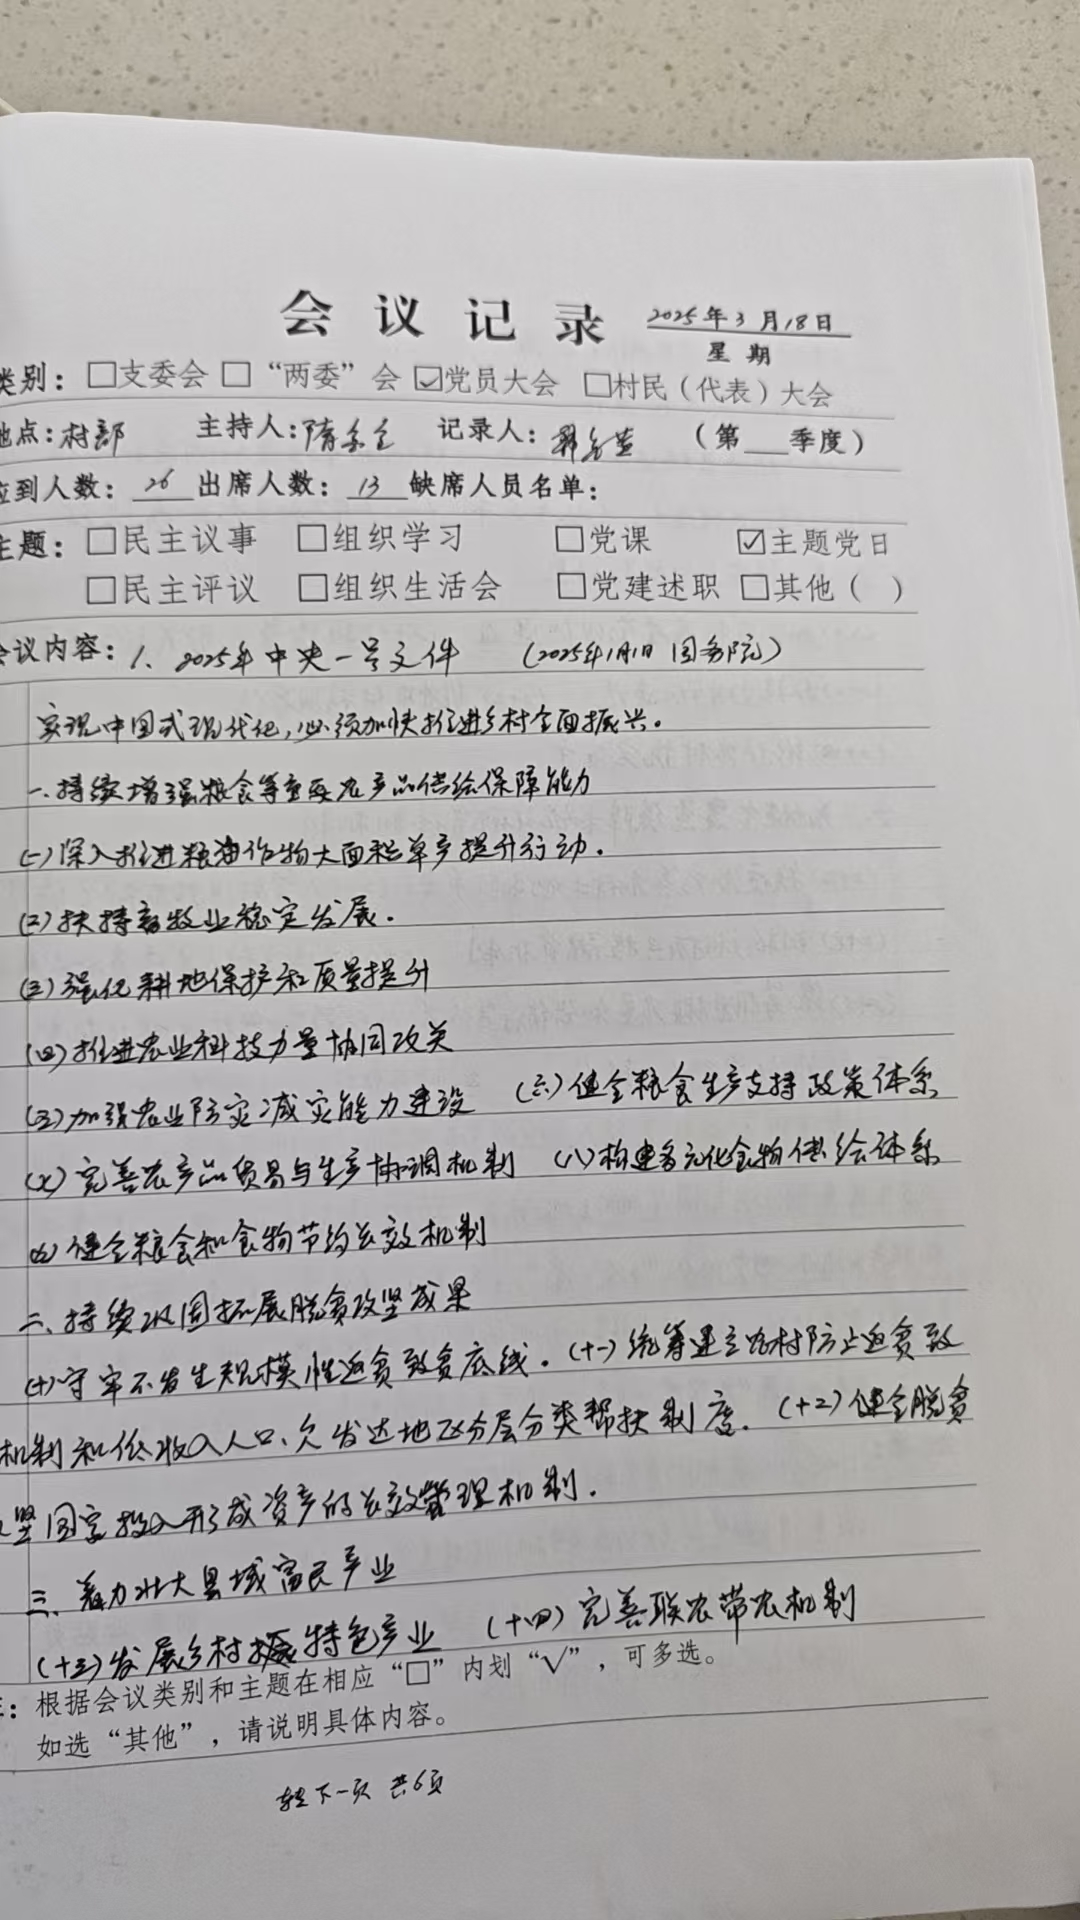 会议记录 2025年3月18日
星期
类别：□支委会 □“两委”会 ☑党员大会 □村民（代表）大会
地点：村部 主持人：隋 记录人： （第 季度）
应到人数：26 出席人数：13 缺席人员名单：
主题：□民主议事 □组织学习 □党课 ☑主题党日
□民主评议 □组织生活会 □党建述职 □其他（ ）
会议内容：1、2025年中央一号文件 （2025年1月1日 国务院）
实现中国式现代化，必须加快推进乡村全面振兴。
一、持续增强粮食等重要农产品供给保障能力
(一)深入推进粮油作物大面积单产提升行动.
(二)扶持畜牧业稳定发展.
(三)强化耕地保护和质量提升
(四)推进农业科技力量协同攻关
(五)加强农业防灾减灾能力建设 (六)健全粮食生产支持政策体系
(七)完善农产品贸易与生产协调机制 (八)构建多元化食物供给体系
(九)健全粮食和食物节约长效机制
二、持续巩固拓展脱贫攻坚成果
(十)守牢不发生规模性返贫致贫底线. (十一)统筹建立农村防止返贫致
机制和低收入人口、欠发达地区分层分类帮扶制度. (十二)健全脱贫
坚国家投入形成资产的长效管理机制.
三、着力壮大县域富民产业
(十三)发展乡村振特色产业 (十四)完善联农带农机制
注：根据会议类别和主题在相应“□”内划“√”，可多选。
如选“其他”，请说明具体内容。
转下一页 共6页